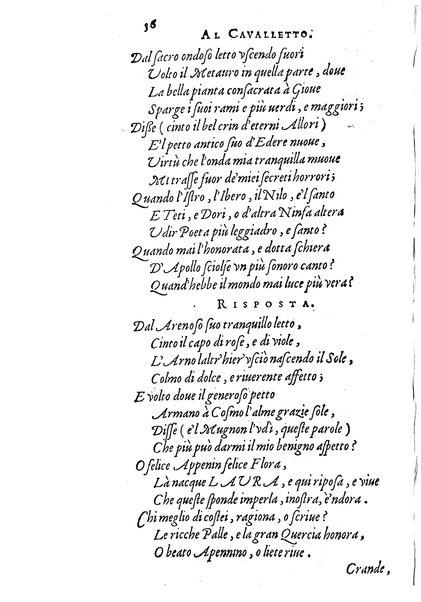 36
AL CAVALLETTO.
Dal sacro ondoso letto vscendo fuori
Volto il Metauro in quella parte, doue
La bella pianta consacrata à Gioue
Sparge i suoi rami e più uerdi, e maggiori;
Disse (cinto il bel crin d'eterni Allori)
E'l petto antico suo d'Edere nuoue,
Virtù che l'onda mia tranquilla muoue
Mi trasse fuor de' miei secreti horrori;
Quando l'Istro, l'Ibero, il Nilo, e'l santo
E Teti, e Dori, o d'altra Ninfa altera
Vdir Poeta più leggiadro, e santo?
Quando mai l'honorata, e dotta schiera
D'Apollo sciolse vn più sonoro canto?
Quand'hebbe il mondo mai luce più vera?
RISPOSTA.
Dal Arenoso suo tranquillo letto,
Cinto il capo di rose, e di viole,
L'Arno laltr'hier vsciò nascendo il Sole,
Colmo di dolce, e riuerente affetto;
E volto doue il generoso petto
Armano à Cosmo l'alme grazie sole,
Disse (e'l Mugnon l'vdì, queste parole)
Che più può darmi il mio benigno aspetto?
O felice Appenin felice Flora,
Là nacque LAURA, e qui riposa, e viue
Che queste sponde imperla, inostra, e'ndora.
Chi meglio di costei, ragiona, o scriue?
Le ricche Palle, e la gran Quercia honora,
O beato Apennino, o liete riue.
Grande,